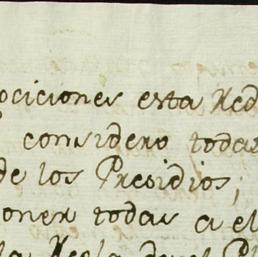 ociciones esta Red
considero todas
de los Presidios;
oner todas a el
la Regla